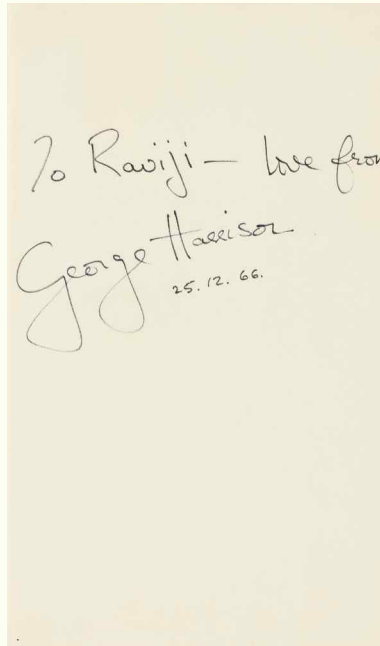 To Raviji — love from
George Harrison
25. 12. 66.